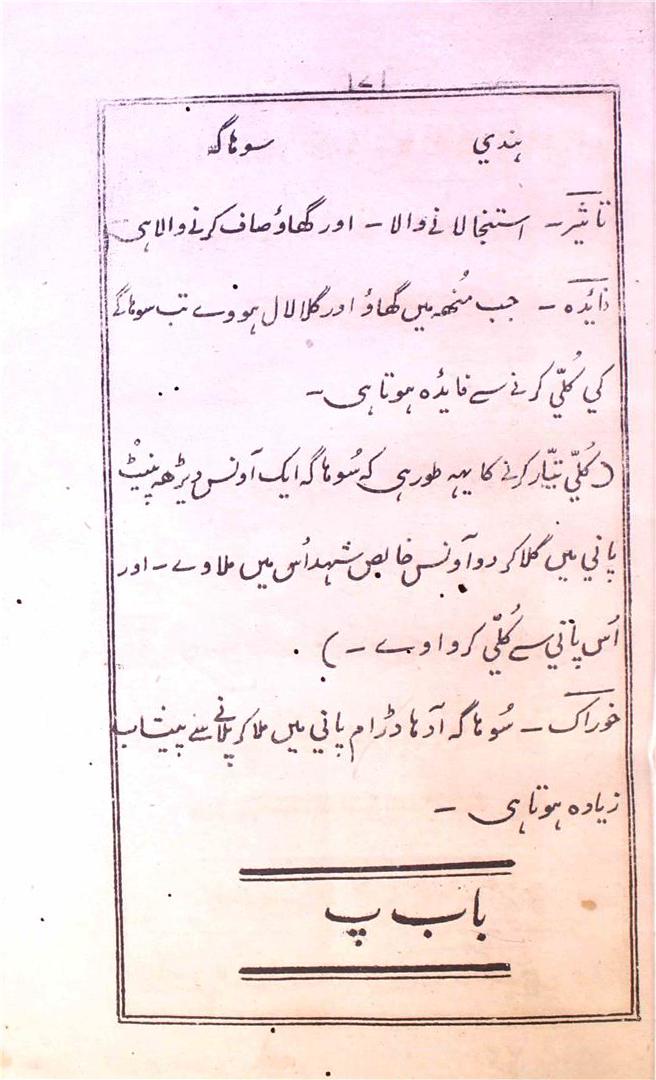 ۱۷۱
هندي سوهاگہ
تاثیر - استنجا لانے والا - اور گھاؤ صاف کرنے والا ہی
فایٔدہ - جب مُنھہ میں گھاوُ اور گلا لال ہووے تب سوهاگے
کي کُلّي کرنے سے فایٔدہ ہوتا ہی -
( کُلّي تیّار کرنے کا یہہ طور ہی کہ سُوهاگہ ایک آونس ڈیڑھہ پنیٹ
پاني میں گلا کر دو آونس خالص شہد اُس میں ملاوے - اور
اُس پاني سے کُلّي کرواوے - )
خوراک - سُوهاگہ آدھا دڑام پاني میں ملا کر پلانے سے پیشاب
زیادہ ہوتا ہی -
باب پ